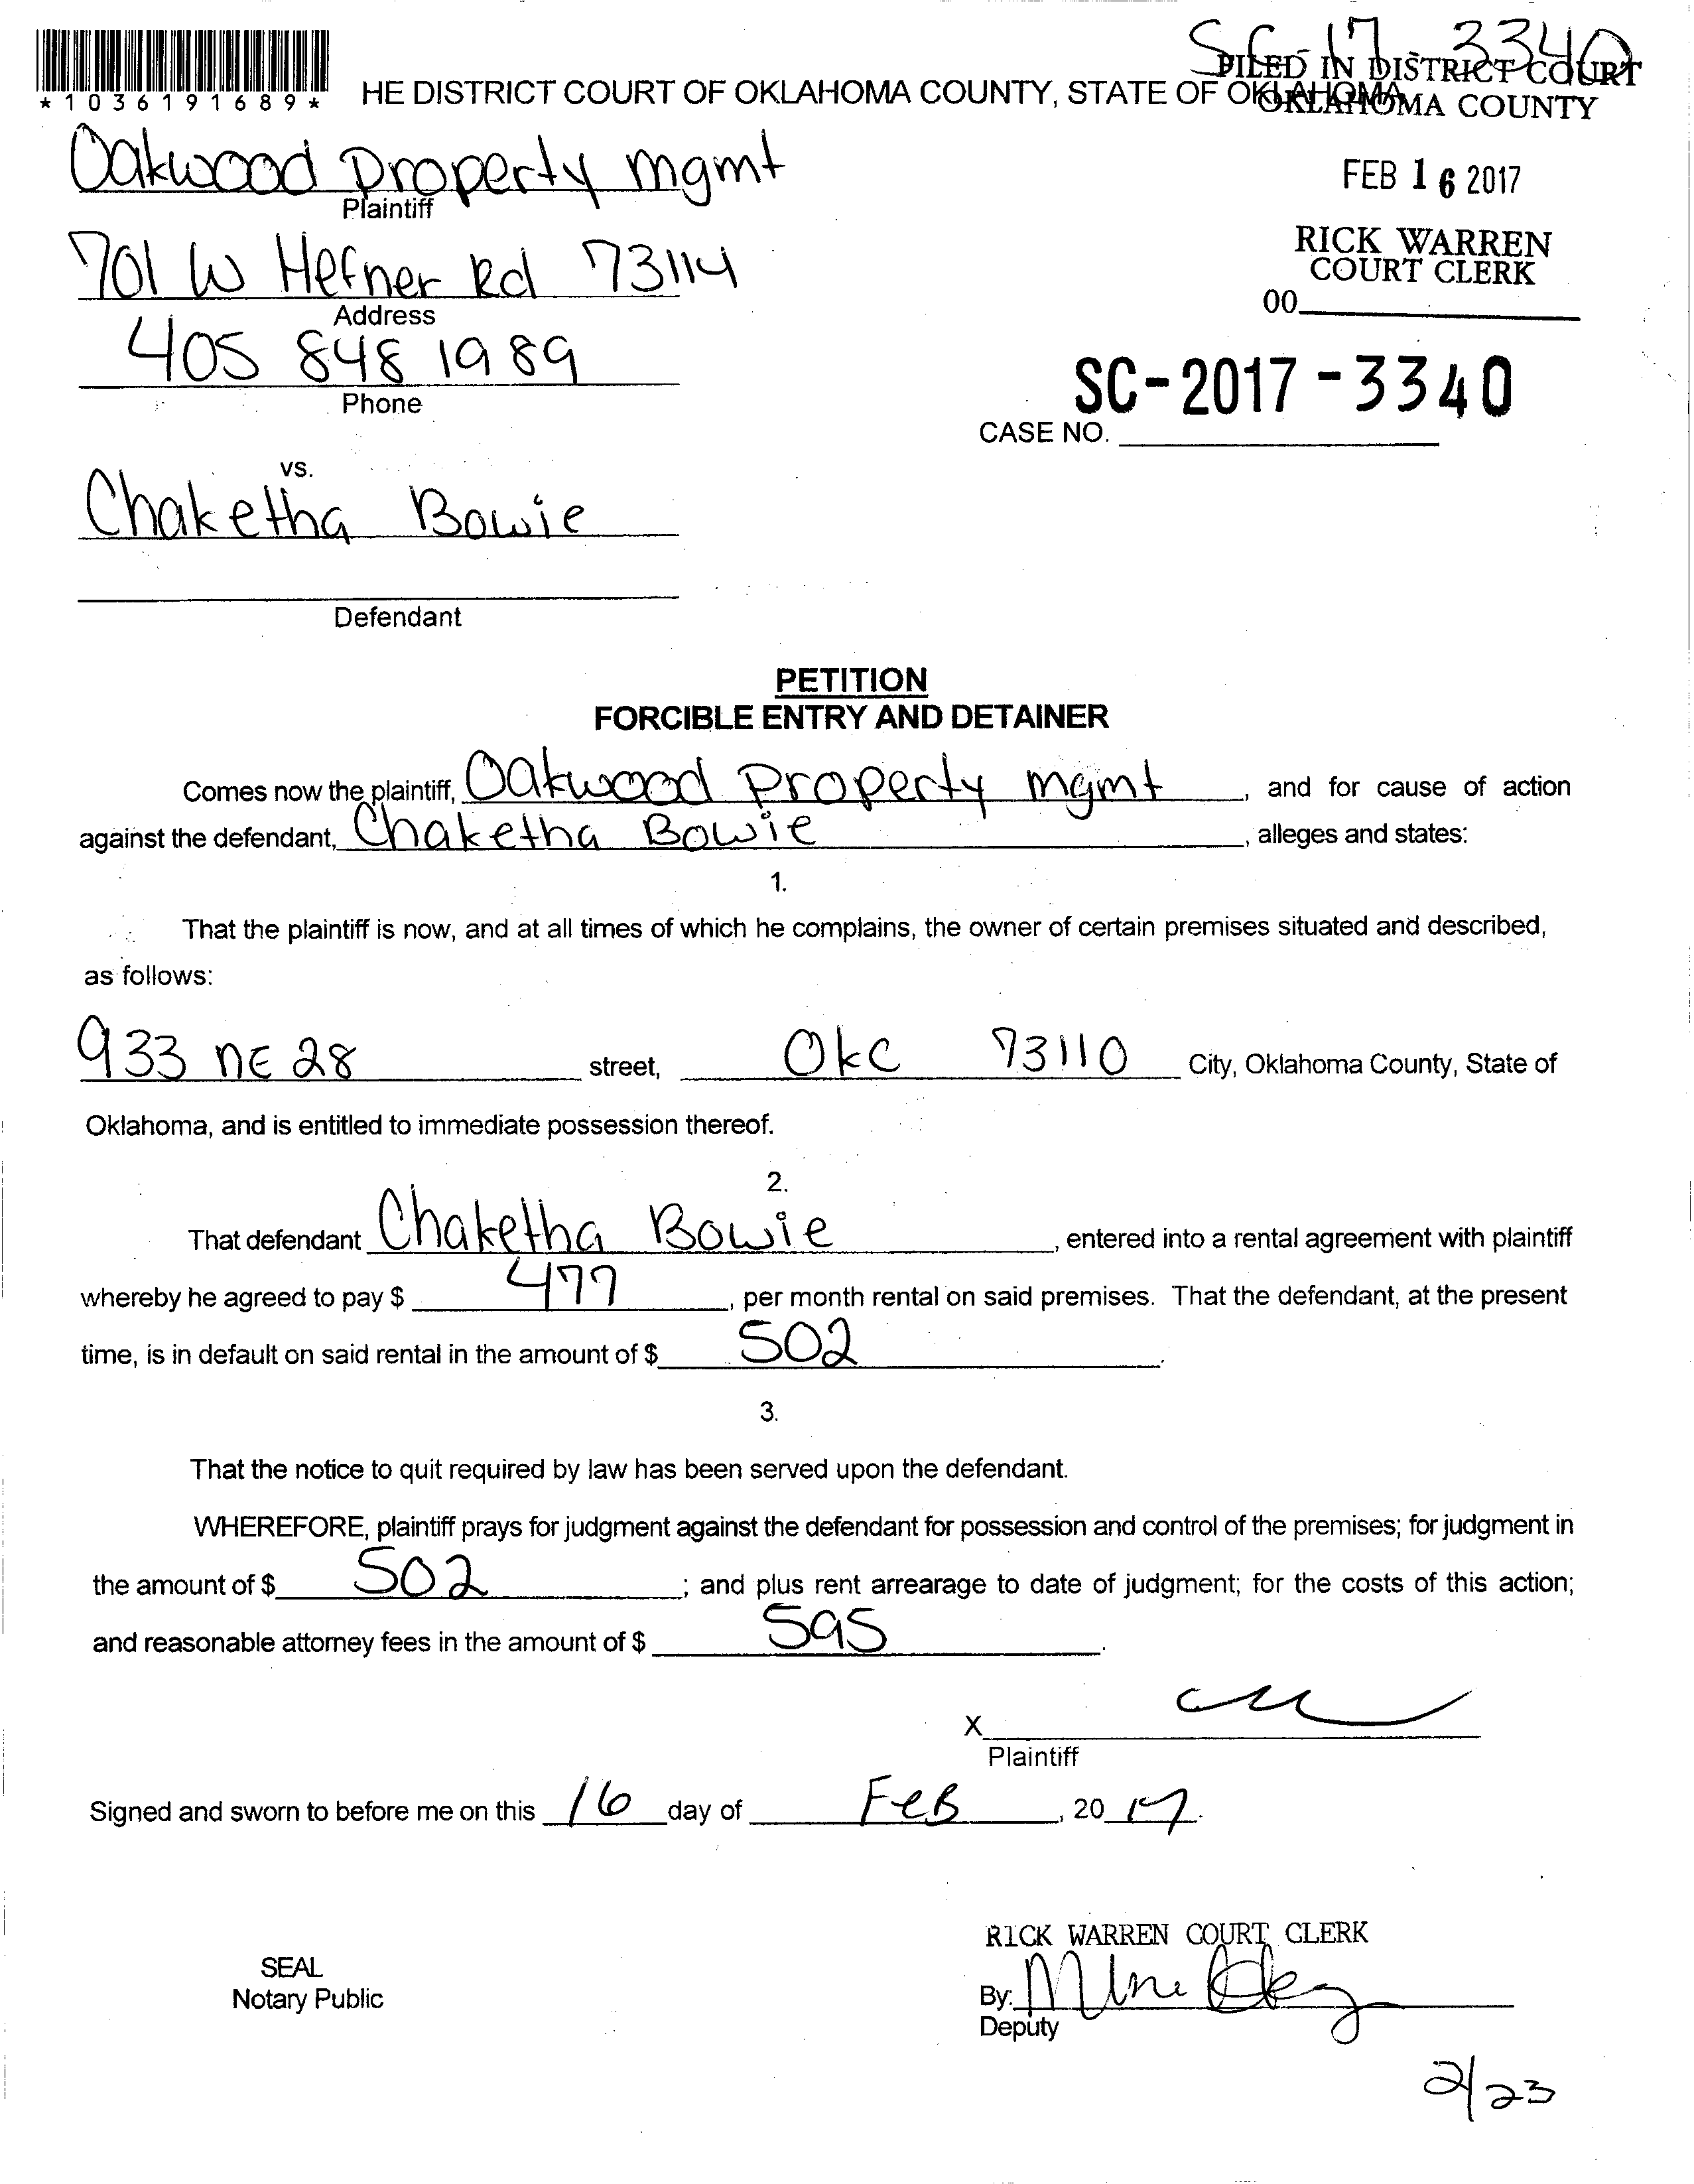 SC-17-3340
FILED IN DISTRICT COURT
*1036191689* HE DISTRICT COURT OF OKLAHOMA COUNTY, STATE OF OKLAHOMA
OKLAHOMA COUNTY
Oakwood Property mgmt
Plaintiff
FEB 16 2017
701 W Hefner Rd 73114
Address
RICK WARREN
COURT CLERK
00
405 848 1989
Phone
SC-2017-3340
CASE NO.
vs.
Chaketha Bowie
Defendant
PETITION
FORCIBLE ENTRY AND DETAINER
Comes now the plaintiff, Oakwood Property mgmt, and for cause of action
against the defendant, Chaketha Bowie, alleges and states:
1.
That the plaintiff is now, and at all times of which he complains, the owner of certain premises situated and described,
as follows:
933 NE 28 street, OKC 73110 City, Oklahoma County, State of
Oklahoma, and is entitled to immediate possession thereof.
2.
That defendant Chaketha Bowie, entered into a rental agreement with plaintiff
whereby he agreed to pay $ 477, per month rental on said premises. That the defendant, at the present
time, is in default on said rental in the amount of $ 502.
3.
That the notice to quit required by law has been served upon the defendant.
WHEREFORE, plaintiff prays for judgment against the defendant for possession and control of the premises; for judgment in
the amount of $ 502; and plus rent arrearage to date of judgment; for the costs of this action;
and reasonable attorney fees in the amount of $ 595.
X
Plaintiff
Signed and sworn to before me on this 16 day of FeB, 2017.
RICK WARREN COURT CLERK
SEAL
Notary Public
By:
Deputy
2/23